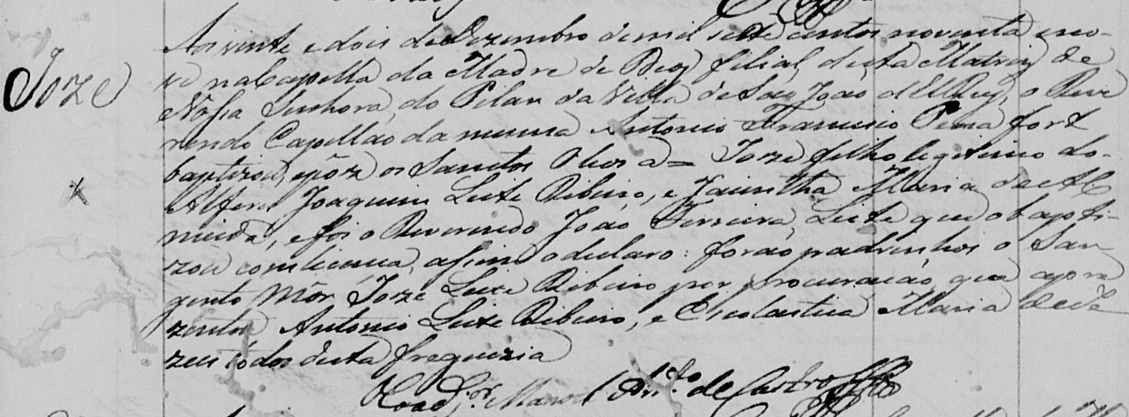 Joze
Aos vinte e dois de Dezembro de mil sete centos noventa e no-
ve na Capella da Madre de Deos filial desta Matriz de
Nossa Senhora do Pilar da Villa de São João d'ElRey, o Reve
rendo Capellão da mesma Antonio Francisco
baptizou, e pôz os Santos Oleos a = Joze filho legitimo do
Alferes Joaquim Leite Ribeiro, e Jacintha Maria da Al
meida, e foi o Reverendo João Ferreira Leite que o bapti-
zou com licença, assim o declaro: forão padrinhos o Sar
gento Mór Joze Leite Ribeiro por procuração, que aprezentou
Antonio Leite Ribeiro, e Escolastica Maria de
zeus todos desta freguezia
O Coadj.or Manoel Ant.o de Castro